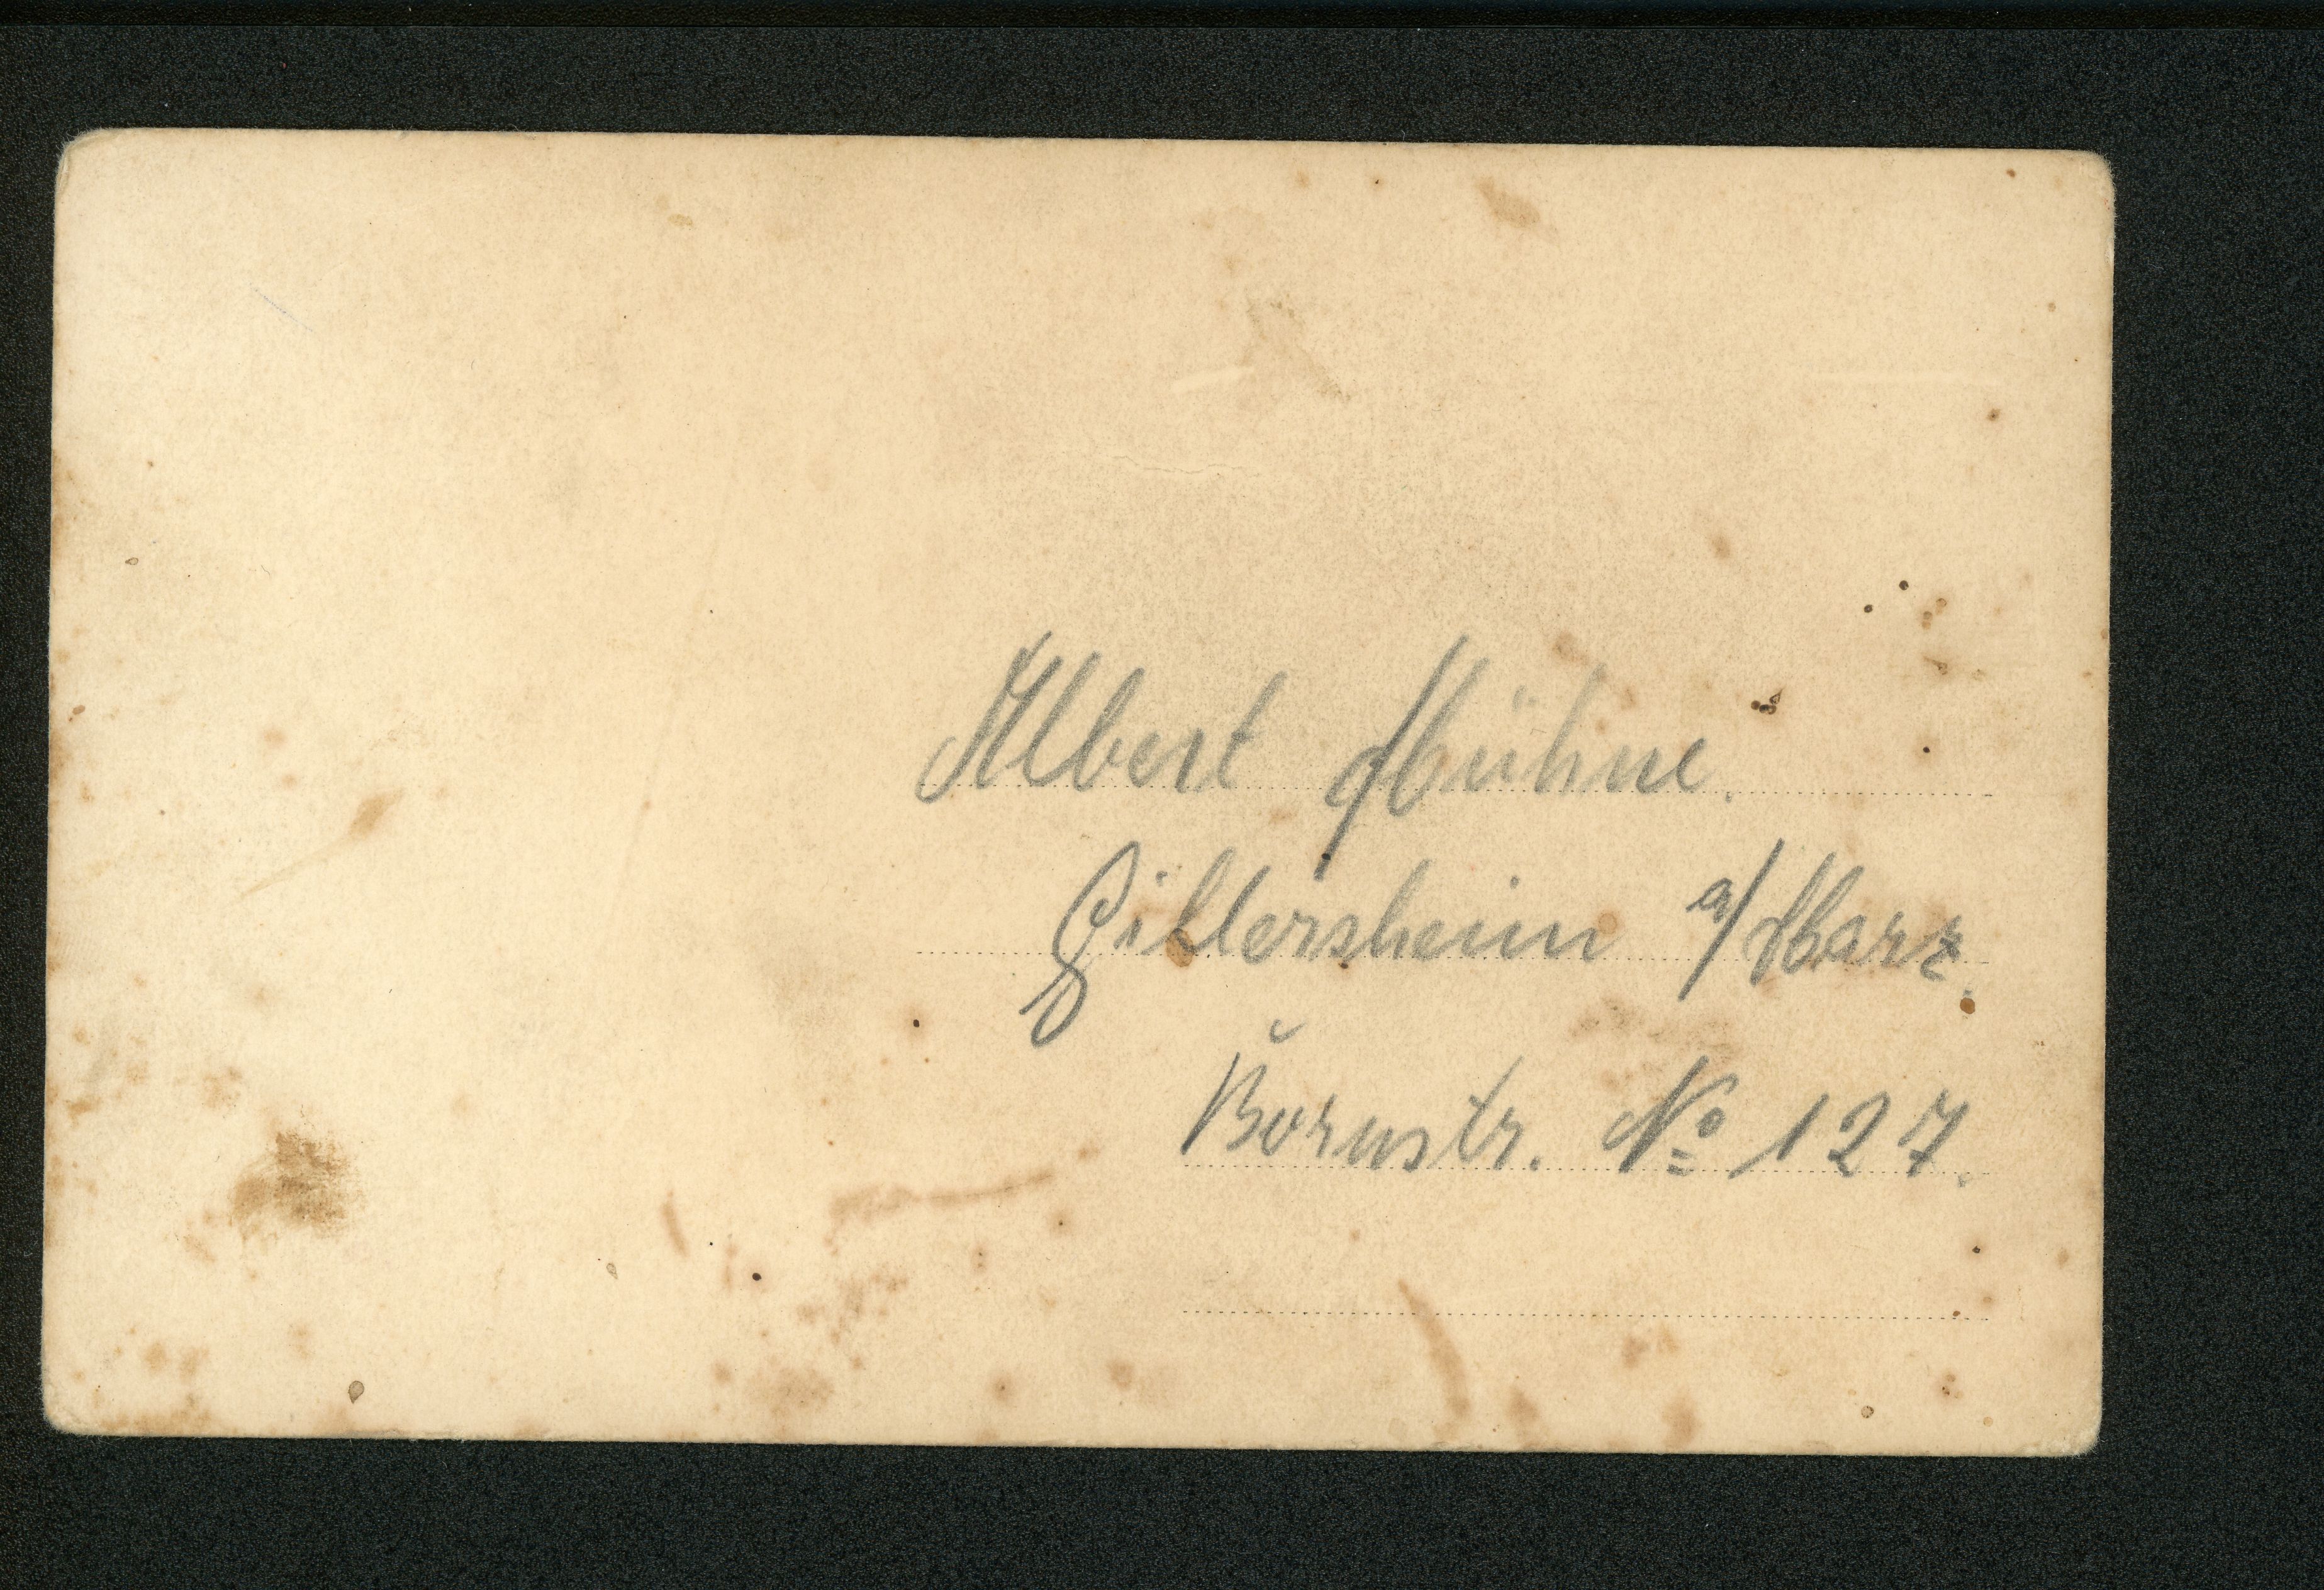 Albert Hühne.
Gillersheim a/Harz.
Bornstr. Nº 127.